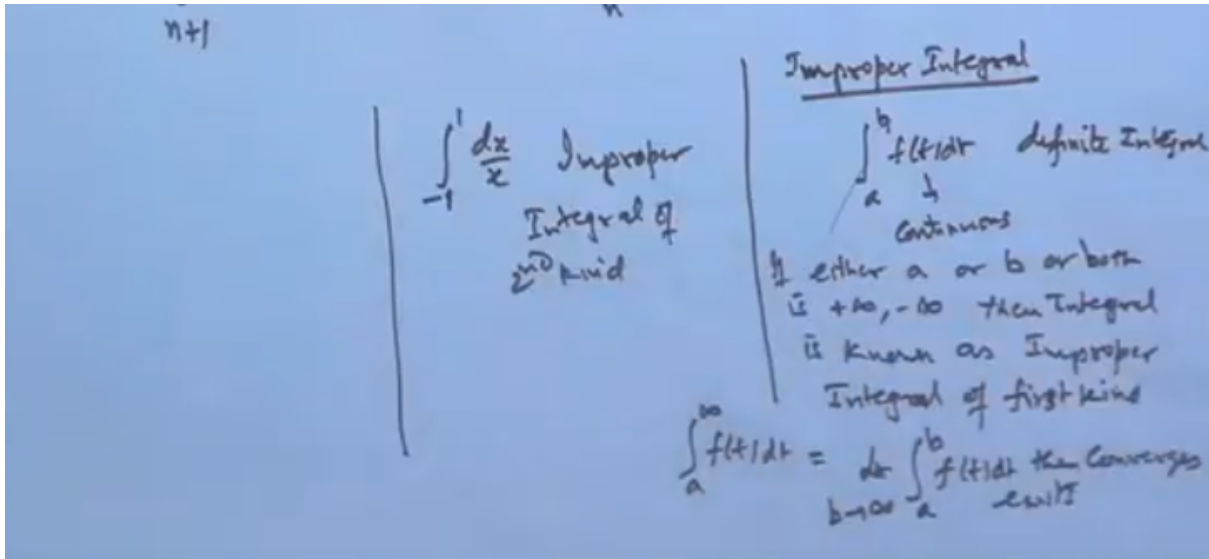 n+1
n
∫_{-1}^{1} dx/x Improper
Integral of
2nd kind
Improper Integral
∫_a^b f(t)dt definite Integral
↓
Continuous
If either a or b or both
is +∞, -∞ then Integral
is known as Improper
Integral of first kind
∫_a^∞ f(t)dt = lt_{b→∞} ∫_a^b f(t)dt then Converges
exists